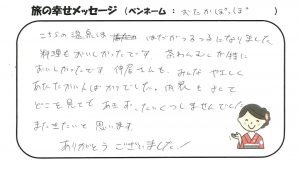 旅の幸せメッセージ（ペンネーム：おたかぽっぽ）
こちらの温泉は はだがつるつるになりました
料理もおいしかったです 茶わんむしが特に
おいしかったです 仲居さんも、みんな やさしく
あたたかい人ばかりでした。内装も よくて
どこを見ても あきず、たいくつしませんでした
またきたいと 思います。
ありがとう ございました！